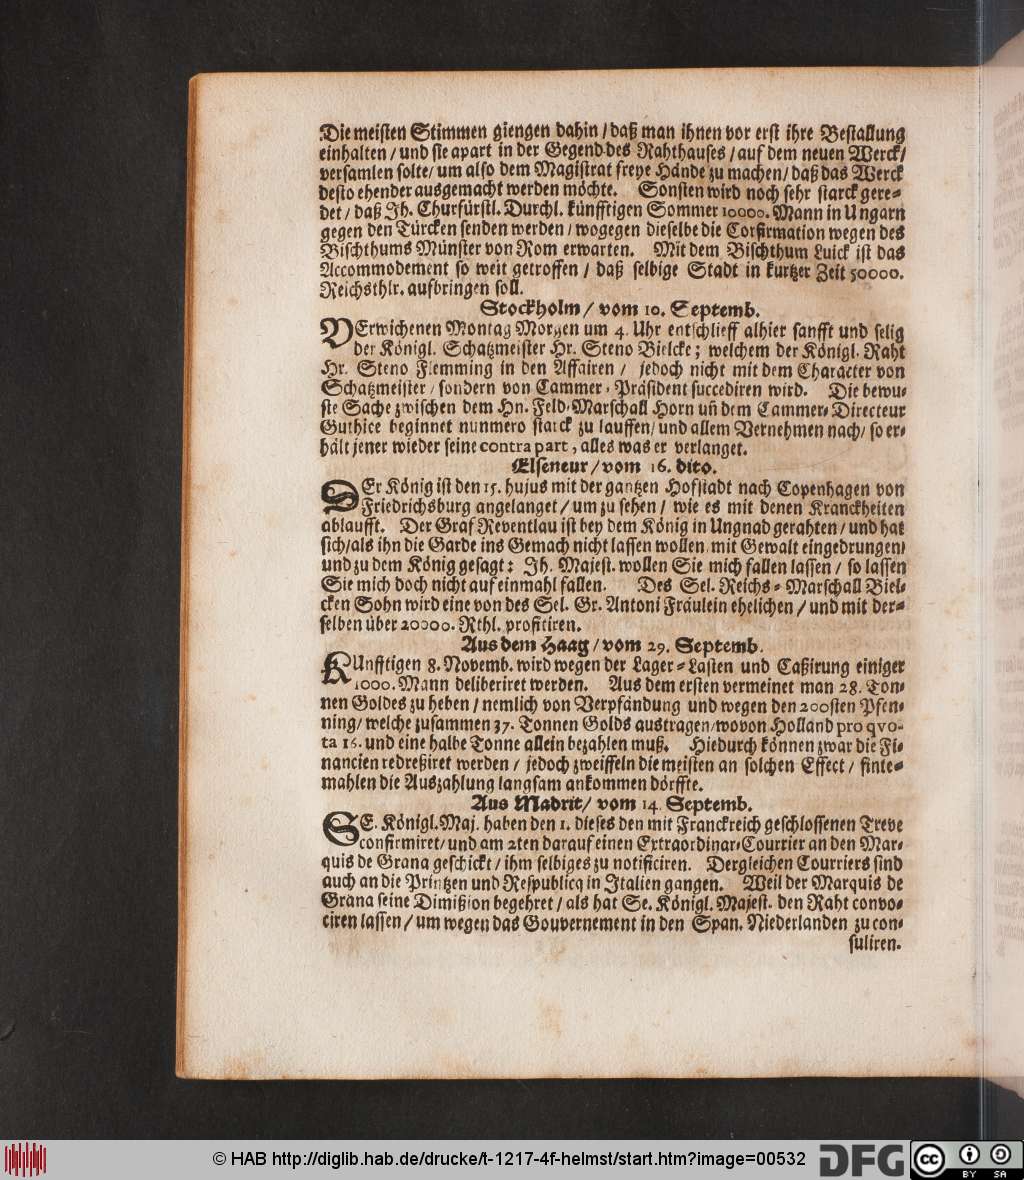 Die meiſten Stimmen giengen dahin / daß man ihnen vor erſt ihre Beſtallung
einhalten / und ſie apart in der Gegend des Rahthauſes / auf dem neuen Werck /
verſamlen ſolte / um alſo dem Magiſtrat freye Hände zu machen / daß das Werck
deſto ehender ausgemacht werden möchte. Sonſten wird noch ſehr ſtarck gere-
det / daß Ih. Churfürſtl. Durchl. künfftigen Sommer 10000. Mann in Ungarn
gegen den Türcken ſenden werden / wogegen dieſelbe die Corfirmation wegen des
Biſchthums Münſter von Rom erwarten. Mit dem Biſchthum Luick iſt das
Accommodement ſo weit getroffen / daß ſelbige Stadt in kurtzer Zeit 50000.
Reichsthlr. aufbringen ſoll.
Stockholm / vom 10. Septemb.
VErwichenen Montag Morgen um 4. Uhr entſchlieff alhier ſanfft und ſelig
der Königl. Schatzmeiſter Hr. Steno Bielcke; welchem der Königl. Raht
Hr. Steno Flemming in den Affairen / jedoch nicht mit dem Character von
Schatzmeiſter / ſondern von Cammer-Präſident ſuccediren wird. Die bewu-
ſte Sache zwiſchen dem Hn. Feld-Marſchall Horn uñ dem Cammer-Directeur
Guthice beginnet nunmero ſtarck zu lauffen / und allem Vernehmen nach / ſo er-
hält jener wieder ſeine contra part, alles was er verlanget.
Elſeneur / vom 16. dito.
DEr König iſt den 15. hujus mit der gantzen Hofſtadt nach Copenhagen von
Friedrichsburg angelanget / um zu ſehen / wie es mit denen Kranckheiten
ablaufft. Der Graf Reventlau iſt bey dem König in Ungnad gerahten / und hat
ſich / als ihn die Garde ins Gemach nicht laſſen wollen mit Gewalt eingedrungen /
und zu dem König geſagt: Ih. Majeſt. wollen Sie mich fallen laſſen / ſo laſſen
Sie mich doch nicht auf einmahl fallen. Des Sel. Reichs-Marſchall Biel-
cken Sohn wird eine von des Sel. Gr. Antoni Fräulein ehelichen / und mit der-
ſelben über 20000. Rthl. profitiren.
Aus dem Haag / vom 29. Septemb.
KUnfftigen 8. Novemb. wird wegen der Lager-Laſten und Caßirung einiger
1000. Mann deliberiret werden. Aus dem erſten vermeinet man 28. Ton-
nen Goldes zu heben / nemlich von Verpfändung und wegen den 200ſten Pfen-
ning / welche zuſammen 37. Tonnen Golds austragen / wovon Holland pro qvo-
ta 16. und eine halbe Tonne allein bezahlen muß. Hiedurch können zwar die Fi-
nancien redreßiret werden / jedoch zweiffeln die meiſten an ſolchen Effect / ſinte-
mahlen die Auszahlung langſam ankommen dörffte.
Aus Madrit / vom 14. Septemb.
SE. Königl. Maj. haben den 1. dieſes den mit Franckreich geſchloſſenen Treve
confirmiret / und am 2ten darauf einen Extraordinar-Courrier an den Mar-
quis de Grana geſchickt / ihm ſelbiges zu notificiren. Dergleichen Courriers ſind
auch an die Printzen und Reſpublicq in Italien gangen. Weil der Marquis de
Grana ſeine Dimißion begehret / als hat Se. Königl. Majeſt. den Raht convo-
ciren laſſen / um wegen das Gouvernement in den Span. Niederlanden zu con-
ſuliren.
© HAB http://diglib.hab.de/drucke/t-1217-4f-helmst/start.htm?image=00532
DFG
cc BY SA